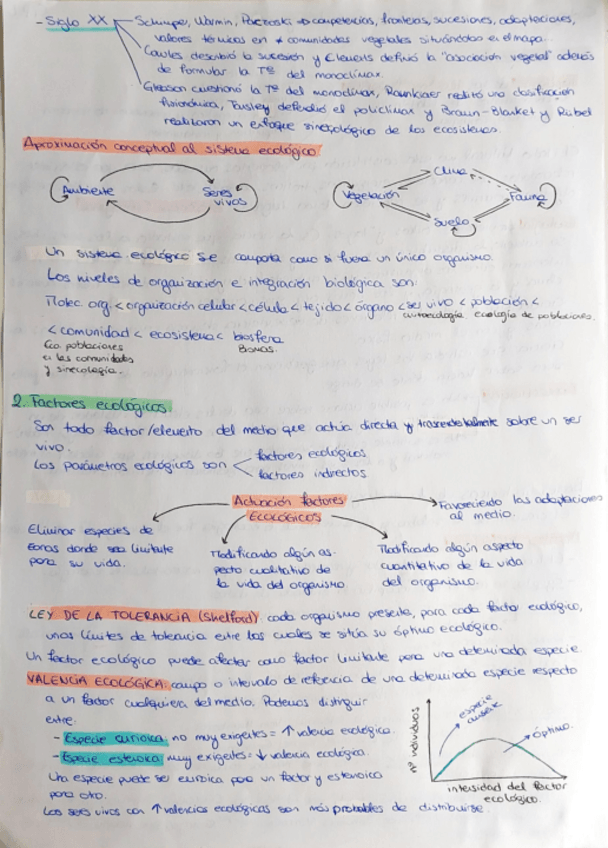 - Siglo XX → Schimper, Warmin, Pactoski → competencias, fronteras, sucesiones, adaptaciones,
valores térmicos en ≠ comunidades vegetales situándolas en el mapa.
Cowles describió la sucesión y Clements definió la "asociación vegetal" además
de formular la Tª del monoclimax.
Gleason cuestionó la Tª del monoclimax, Raunkiaer realizó una clasificación
fisionómica, Tansley defendió el policlimax y Braun-Blanket y Rübel
realizaron un enfoque sinecológico de los ecosistemas.
Aproximación conceptual al sistema ecológico
Ambiente
Seres vivos
Clima
Vegetación
Fauna
Suelo
Un sistema ecológico se comporta como si fuera un único organismo.
Los niveles de organización e integración biológica son:
Molec. org < organización celular < célula < tejido < órgano < ser vivo < población <
autoecología ecología de poblaciones.
< comunidad < ecosistema < biosfera
Eco. poblaciones
Biomas.
en las comunidades
y sinecología.
2. Factores ecológicos.
Son todo factor/elemento del medio que actúa directa y trascendentalmente sobre un ser
vivo.
Los parámetros ecológicos son
factores ecológicos
factores indirectos.
Actuación factores
ECOLÓGICOS
Favoreciendo las adaptaciones
al medio.
Eliminar especies de
zonas donde sea limitante
para su vida.
Modificando algún as-
pecto cualitativo de
la vida del organismo.
Modificando algún aspecto
cuantitativo de la vida
del organismo.
LEY DE LA TOLERANCIA (Shelford): cada organismo presenta, para cada factor ecológico,
unos límites de tolerancia entre los cuales se sitúa su óptimo ecológico.
Un factor ecológico puede afectar como factor limitante para una determinada especie.
VALENCIA ECOLÓGICA: campo o intervalo de referencia de una determinada especie respecto
a un factor cualquiera del medio. Podemos distinguir
entre:
- Especie eurioica: no muy exigentes = ↑ valencia ecológica.
- Especie estenoica: muy exigentes = ↓ valencia ecológica.
Una especie puede ser eurioica para un factor y estenoica
para otro.
Los seres vivos con ↑ valencias ecológicas son más probables de distribuirse.
nº individuos
especie
ausente
óptimo.
intensidad del factor
ecológico.